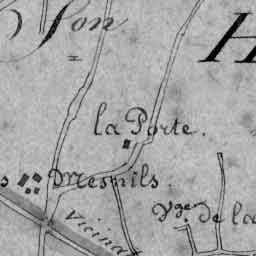 Son
H
la Porte.
s Mesnils.
Vicina
Vge. de la